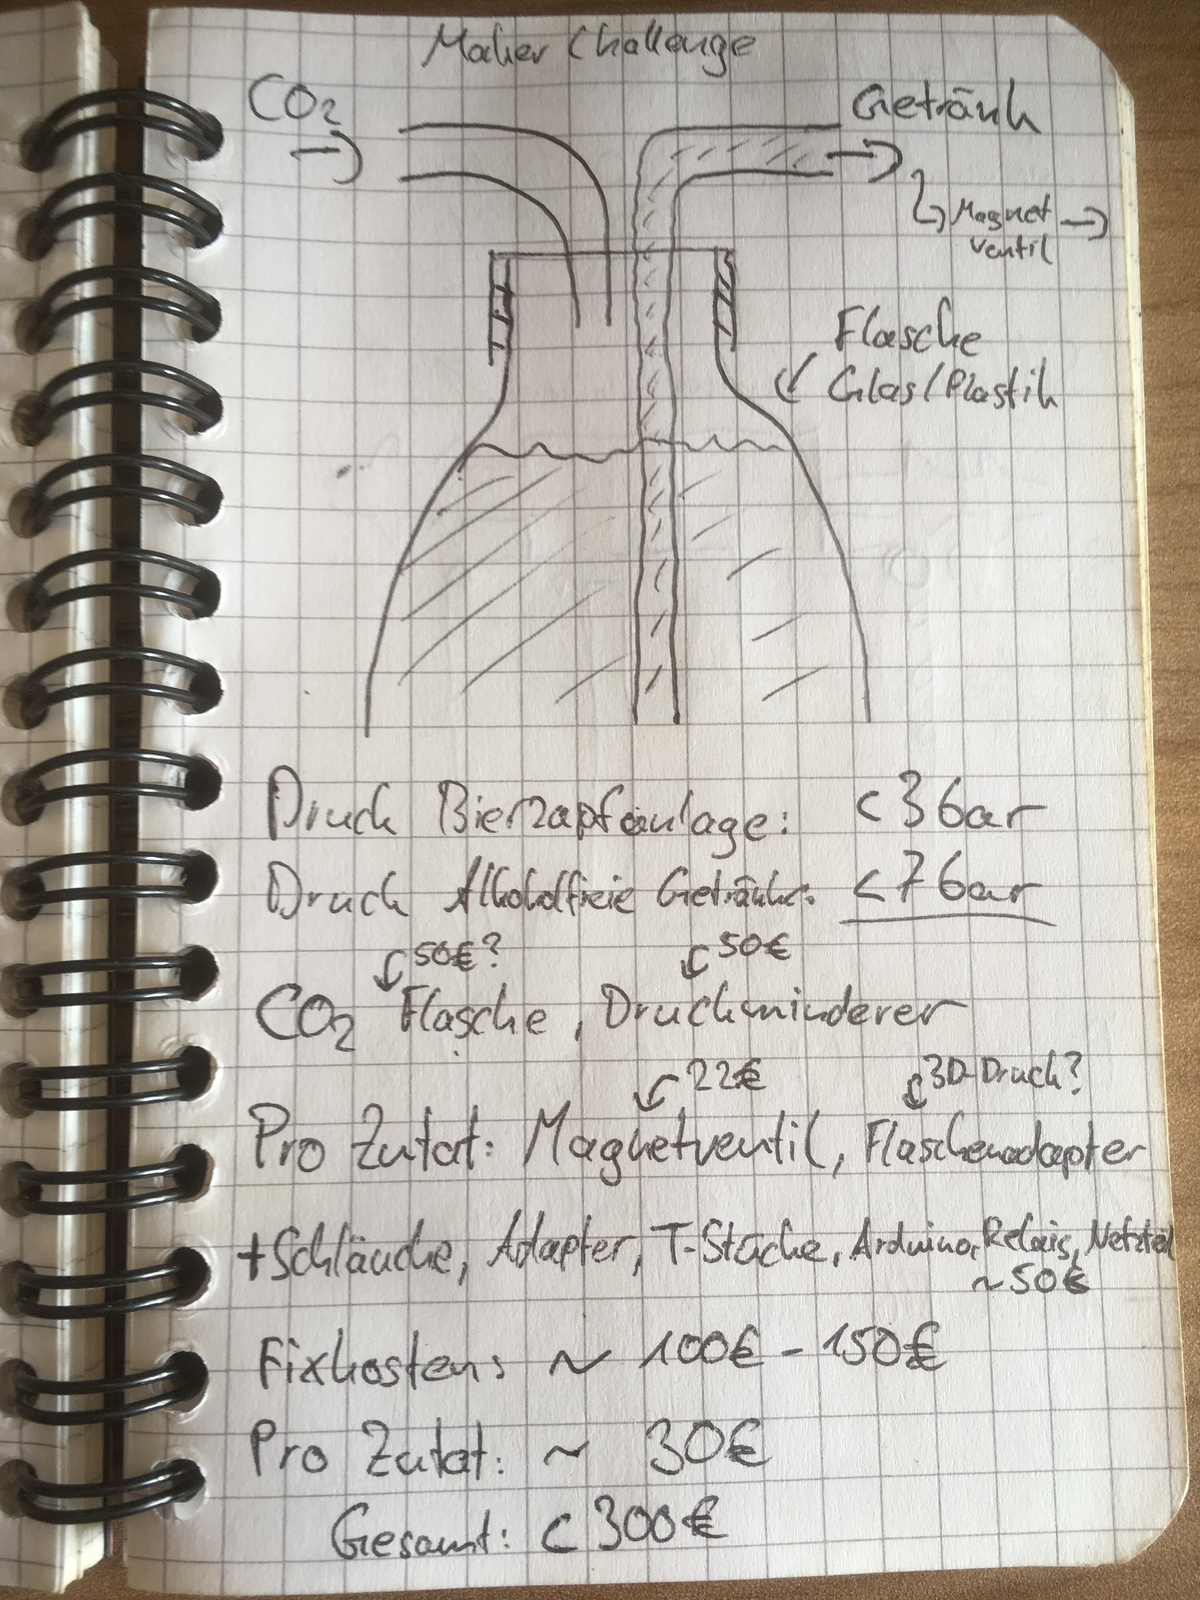 Maker Challenge
CO2
Getränk
Magnet
ventil
Flasche
Glas/Plastik
Druck Bierzapfanlage: < 3 bar
Druck Alkoholfreie Getränke: < 7 bar
50€? 50€
CO2 Flasche, Druckminderer
22€ 3D-Druck?
Pro Zutat: Magnetventil, Flaschenadapter
+Schläuche, Adapter, T-Stücke, Arduino, Relais, Netzteil
~50€
Fixkosten: ~ 100€ - 150€
Pro Zutat: ~ 30€
Gesamt: < 300€